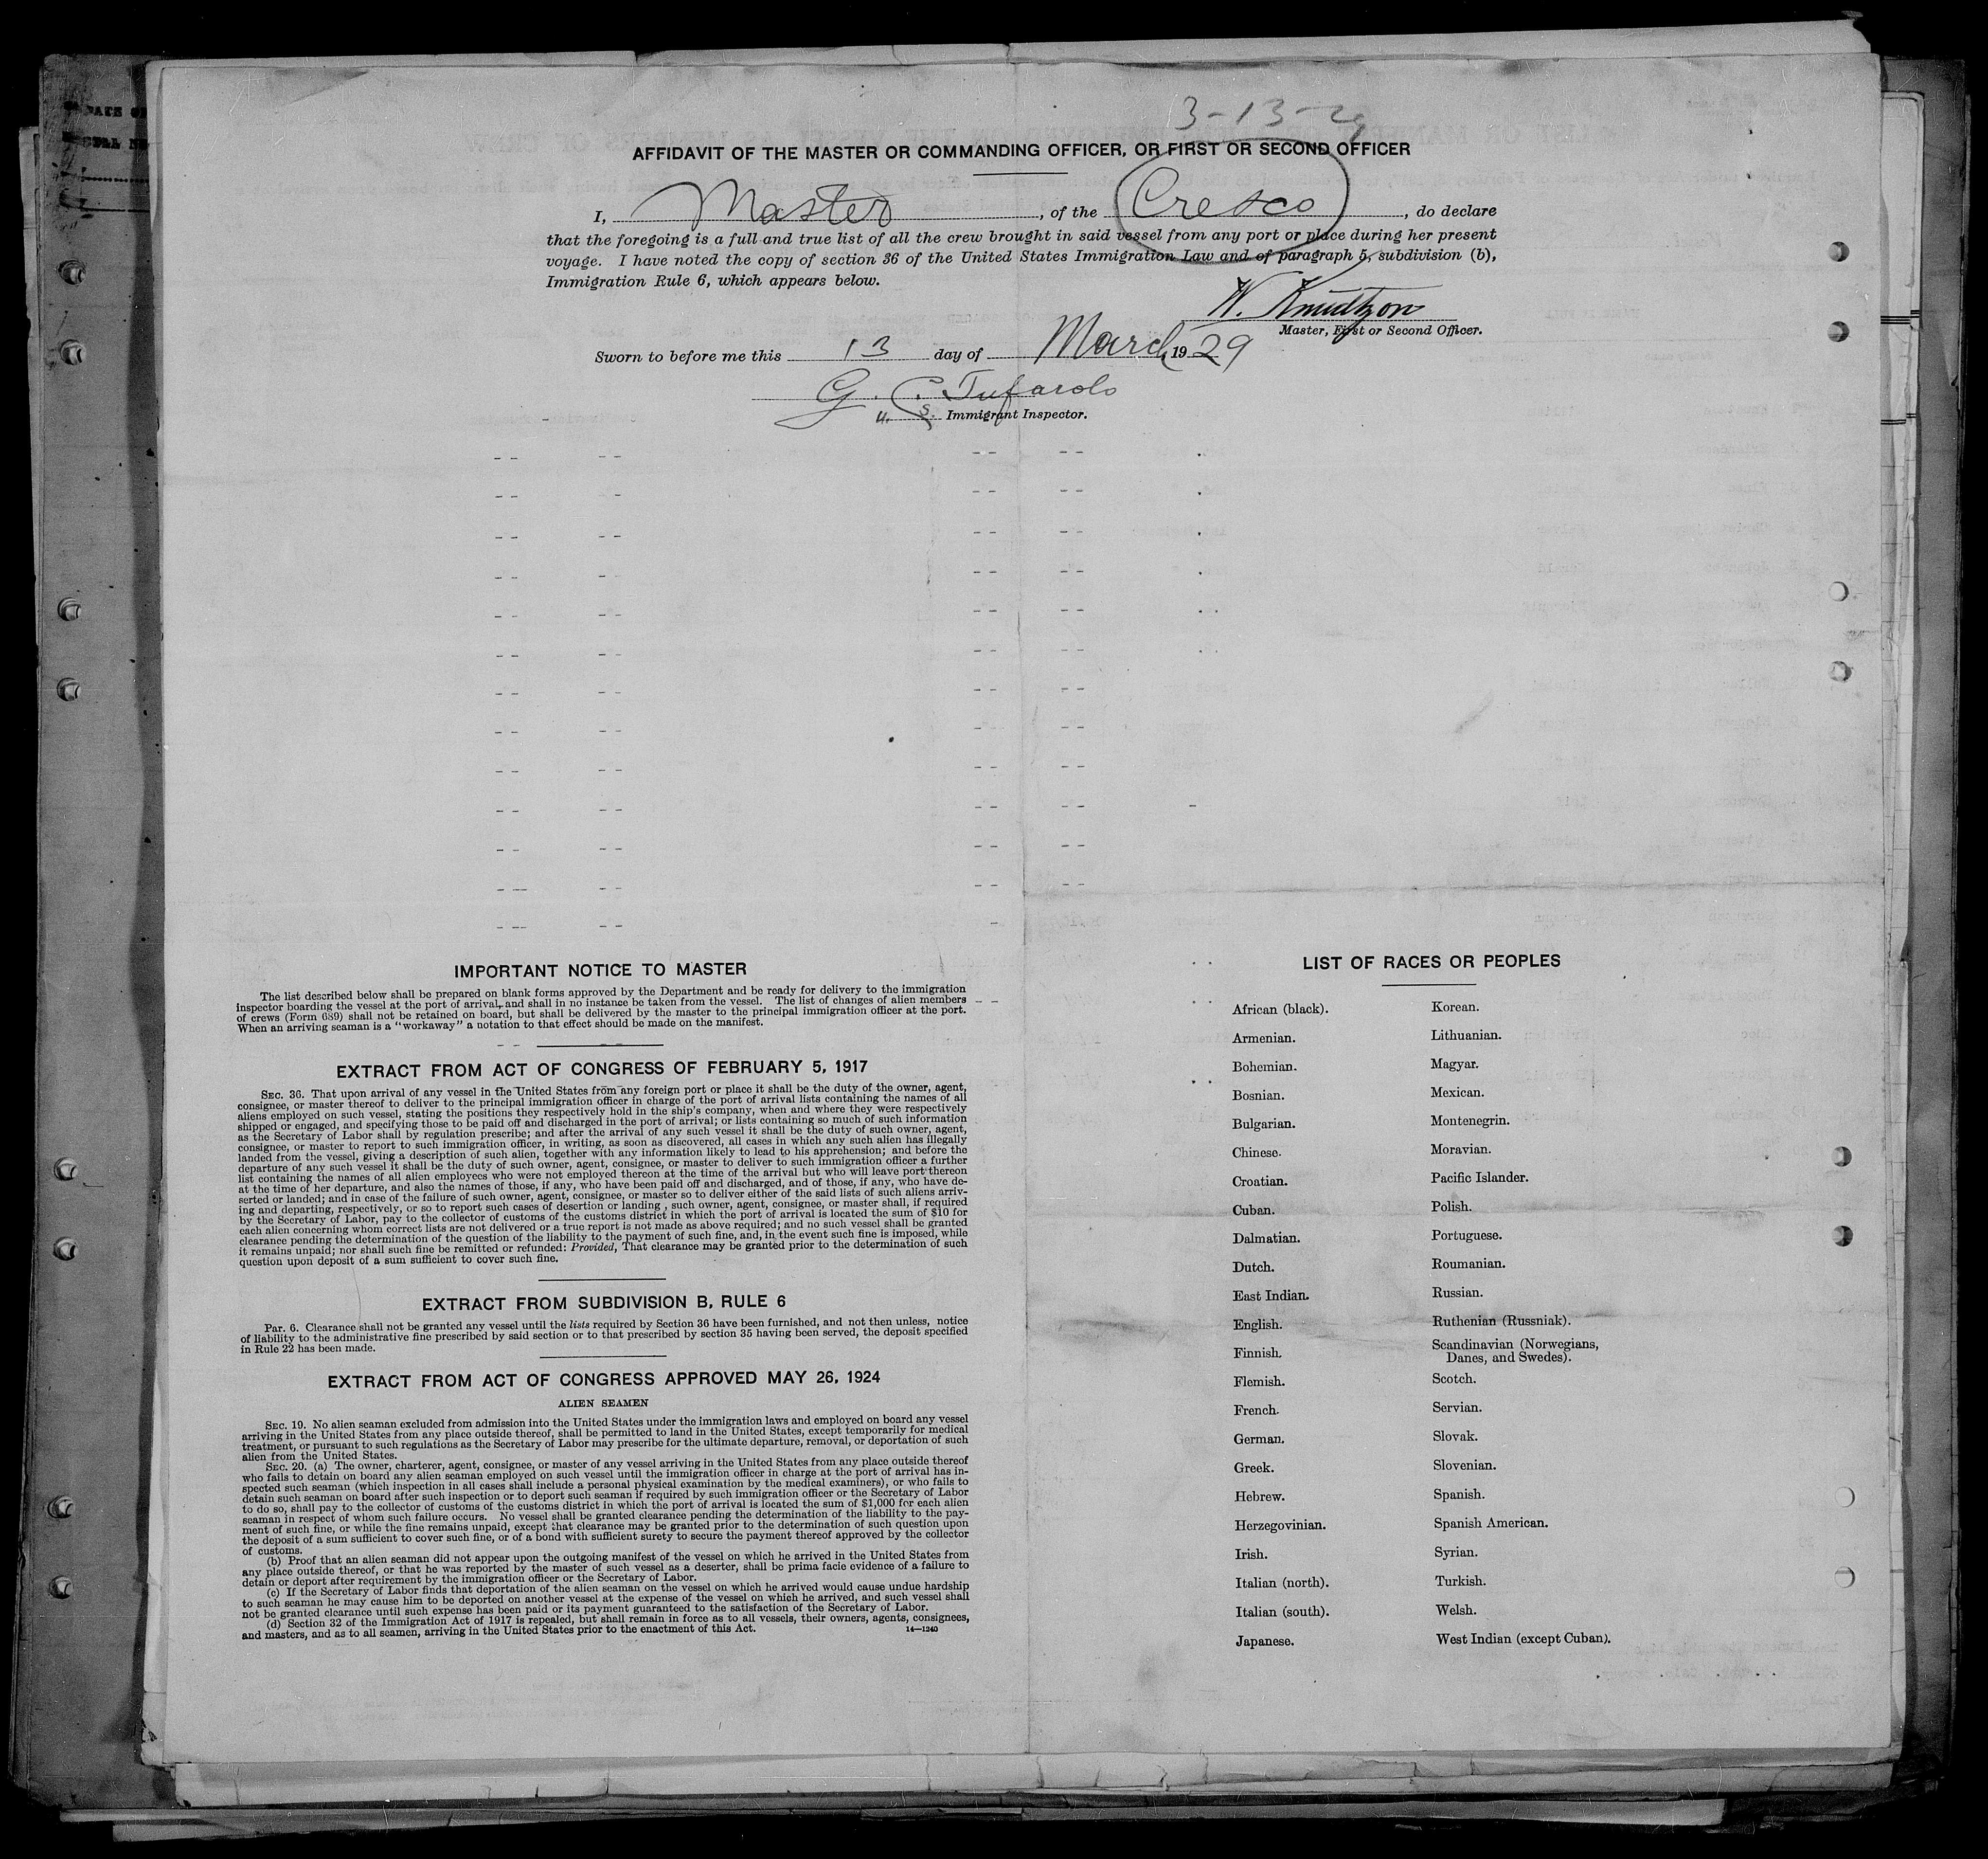 3-13-29
AFFIDAVIT OF THE MASTER OR COMMANDING OFFICER, OR FIRST OR SECOND OFFICER
I, Master, of the Cresco, do declare
that the foregoing is a full and true list of all the crew brought in said vessel from any port or place during her present
voyage. I have noted the copy of section 36 of the United States Immigration Law and of paragraph 5, subdivision (b),
Immigration Rule 6, which appears below.
N. Knudtzon
Master, First or Second Officer.
Sworn to before me this 13 day of March, 1929
G. C. Tufarolo
U. S. Immigrant Inspector.
IMPORTANT NOTICE TO MASTER
The list described below shall be prepared on blank forms approved by the Department and be ready for delivery to the immigration
inspector boarding the vessel at the port of arrival, and shall in no instance be taken from the vessel. The list of changes of alien members
of crews (Form 689) shall not be retained on board, but shall be delivered by the master to the principal immigration officer at the port.
When an arriving seaman is a "workaway" a notation to that effect should be made on the manifest.
EXTRACT FROM ACT OF CONGRESS OF FEBRUARY 5, 1917
SEC. 36. That upon arrival of any vessel in the United States from any foreign port or place it shall be the duty of the owner, agent,
consignee, or master thereof to deliver to the principal immigration officer in charge of the port of arrival lists containing the names of all
aliens employed on such vessel, stating the positions they respectively hold in the ship's company, when and where they were respectively
shipped or engaged, and specifying those to be paid off and discharged in the port of arrival; or lists containing so much of such information
as the Secretary of Labor shall by regulation prescribe; and after the arrival of any such vessel it shall be the duty of such owner, agent,
consignee, or master to report to such immigration officer, in writing, as soon as discovered, all cases in which any such alien has illegally
landed from the vessel, giving a description of such alien, together with any information likely to lead to his apprehension; and before the
departure of any such vessel it shall be the duty of such owner, agent, consignee, or master to deliver to such immigration officer a further
list containing the names of all alien employees who were not employed thereon at the time of the arrival but who will leave port thereon
at the time of her departure, and also the names of those, if any, who have been paid off and discharged, and of those, if any, who have de-
serted or landed; and in case of the failure of such owner, agent, consignee, or master so to deliver either of the said lists of such aliens arriv-
ing and departing, respectively, or so to report such cases of desertion or landing , such owner, agent, consignee, or master shall, if required
by the Secretary of Labor, pay to the collector of customs of the customs district in which the port of arrival is located the sum of $10 for
each alien concerning whom correct lists are not delivered or a true report is not made as above required; and no such vessel shall be granted
clearance pending the determination of the question of the liability to the payment of such fine, and, in the event such fine is imposed, while
it remains unpaid; nor shall such fine be remitted or refunded: Provided, That clearance may be granted prior to the determination of such
question upon deposit of a sum sufficient to cover such fine.
EXTRACT FROM SUBDIVISION B, RULE 6
Par. 6. Clearance shall not be granted any vessel until the lists required by Section 36 have been furnished, and not then unless, notice
of liability to the administrative fine prescribed by said section or to that prescribed by section 35 having been served, the deposit specified
in Rule 22 has been made.
EXTRACT FROM ACT OF CONGRESS APPROVED MAY 26, 1924
ALIEN SEAMEN
SEC. 19. No alien seaman excluded from admission into the United States under the immigration laws and employed on board any vessel
arriving in the United States from any place outside thereof, shall be permitted to land in the United States, except temporarily for medical
treatment, or pursuant to such regulations as the Secretary of Labor may prescribe for the ultimate departure, removal, or deportation of such
alien from the United States.
SEC. 20. (a) The owner, charterer, agent, consignee, or master of any vessel arriving in the United States from any place outside thereof
who fails to detain on board any alien seaman employed on such vessel until the immigration officer in charge at the port of arrival has in-
spected such seaman (which inspection in all cases shall include a personal physical examination by the medical examiners), or who fails to
detain such seaman on board after such inspection or to deport such seaman if required by such immigration officer or the Secretary of Labor
to do so, shall pay to the collector of customs of the customs district in which the port of arrival is located the sum of $1,000 for each alien
seaman in respect of whom such failure occurs. No vessel shall be granted clearance pending the determination of the liability to the pay-
ment of such fine, or while the fine remains unpaid, except that clearance may be granted prior to the determination of such question upon
the deposit of a sum sufficient to cover such fine, or of a bond with sufficient surety to secure the payment thereof approved by the collector
of customs.
(b) Proof that an alien seaman did not appear upon the outgoing manifest of the vessel on which he arrived in the United States from
any place outside thereof, or that he was reported by the master of such vessel as a deserter, shall be prima facie evidence of a failure to
detain or deport after requirement by the immigration officer or the Secretary of Labor.
(c) If the Secretary of Labor finds that deportation of the alien seaman on the vessel on which he arrived would cause undue hardship
to such seaman he may cause him to be deported on another vessel at the expense of the vessel on which he arrived, and such vessel shall
not be granted clearance until such expense has been paid or its payment guaranteed to the satisfaction of the Secretary of Labor.
(d) Section 32 of the Immigration Act of 1917 is repealed, but shall remain in force as to all vessels, their owners, agents, consignees,
and masters, and as to all seamen, arriving in the United States prior to the enactment of this Act. 14—1240
LIST OF RACES OR PEOPLES
African (black).
Armenian.
Bohemian.
Bosnian.
Bulgarian.
Chinese.
Croatian.
Cuban.
Dalmatian.
Dutch.
East Indian.
English.
Finnish.
Flemish.
French.
German.
Greek.
Hebrew.
Herzegovinian.
Irish.
Italian (north).
Italian (south).
Japanese.
Korean.
Lithuanian.
Magyar.
Mexican.
Montenegrin.
Moravian.
Pacific Islander.
Polish.
Portuguese.
Roumanian.
Russian.
Ruthenian (Russniak).
Scandinavian (Norwegians,
Danes, and Swedes).
Scotch.
Servian.
Slovak.
Slovenian.
Spanish.
Spanish American.
Syrian.
Turkish.
Welsh.
West Indian (except Cuban).